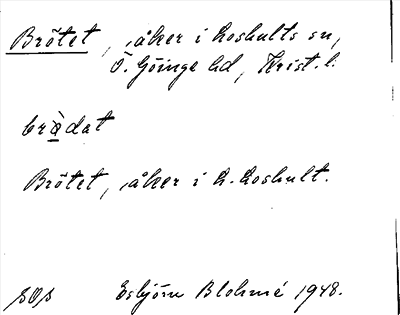 Brötet, åker i Loshults sn,
Ö. Göinge hd, Krist. l.
brö̀dat
Brötet, åker i L. Loshult.
SOS Esbjörn Blohmé 1948.